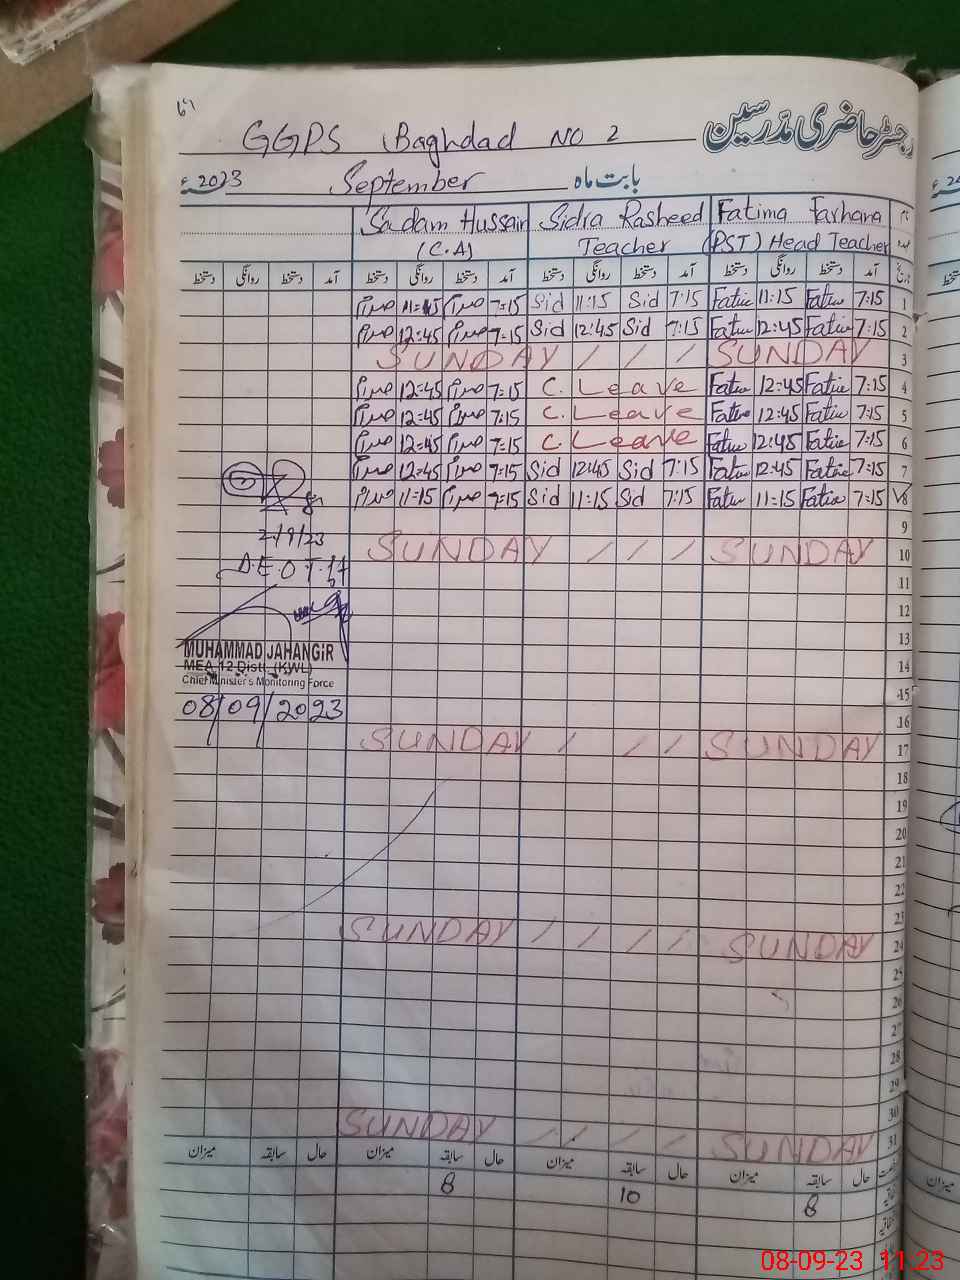 رجسٹر حاضری مدرسین
GGPS Baghdad NO 2
بابت ماہ September 2023ء
Sadam Hussain Sidra Rasheed Fatima Farhana
(C.A) Teacher (PST) Head Teacher
دستخط روانگی دستخط آمد دستخط روانگی دستخط آمد دستخط روانگی دستخط آمد دستخط روانگی دستخط آمد تاریخ
11=45 7=15 Sid 11:15 Sid 7:15 Fatie 11:15 Fatie 7:15 1
12=45 7=15 Sid 12:45 Sid 7:15 Fatie 12:45 Fatie 7:15 2
SUNDAY / / / SUNDAY 3
12=45 7=15 C. Leave Fatie 12:45 Fatie 7:15 4
12=45 7:15 C. Leave Fatie 12:45 Fatie 7:15 5
12=45 7=15 C. Leave Fatie 12:45 Fatie 7:15 6
12=45 7=15 Sid 12:45 Sid 7:15 Fatie 12:45 Fatie 7:15 7
11=15 7=15 Sid 11:15 Sid 7:15 Fatie 11:15 Fatie 7:15 8
9
SUNDAY / / / SUNDAY 10
11
12
13
14
15
16
SUNDAY / / / SUNDAY 17
18
19
20
21
22
23
SUNDAY / / / / SUNDAY 24
25
26
27
28
29
30
SUNDAY / / / / SUNDAY 31
میزان سابقہ حال میزان سابقہ حال میزان سابقہ حال میزان سابقہ حال
8 10 8
2/9/23
MUHAMMAD JAHANGIR
MEA 12 Distt. (KWL)
Chief Minister's Monitoring Force
08/09/2023
میزان
08-09-23 11:23